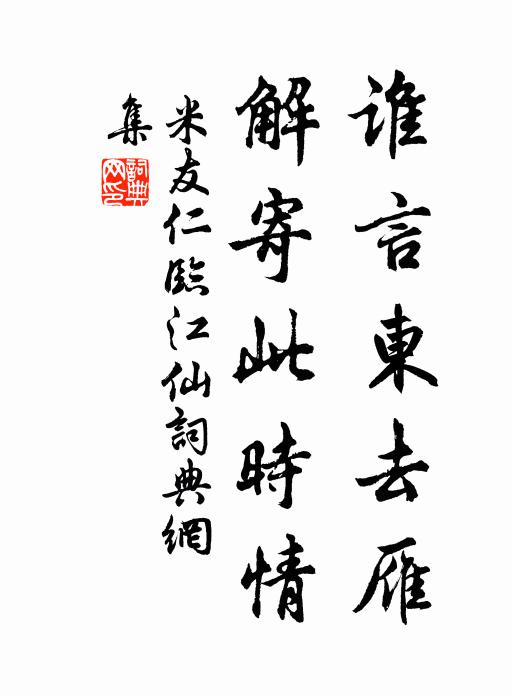 誰言東去雁
解寄此時情
米友仁臨江仙詞典網
集
詞典網印